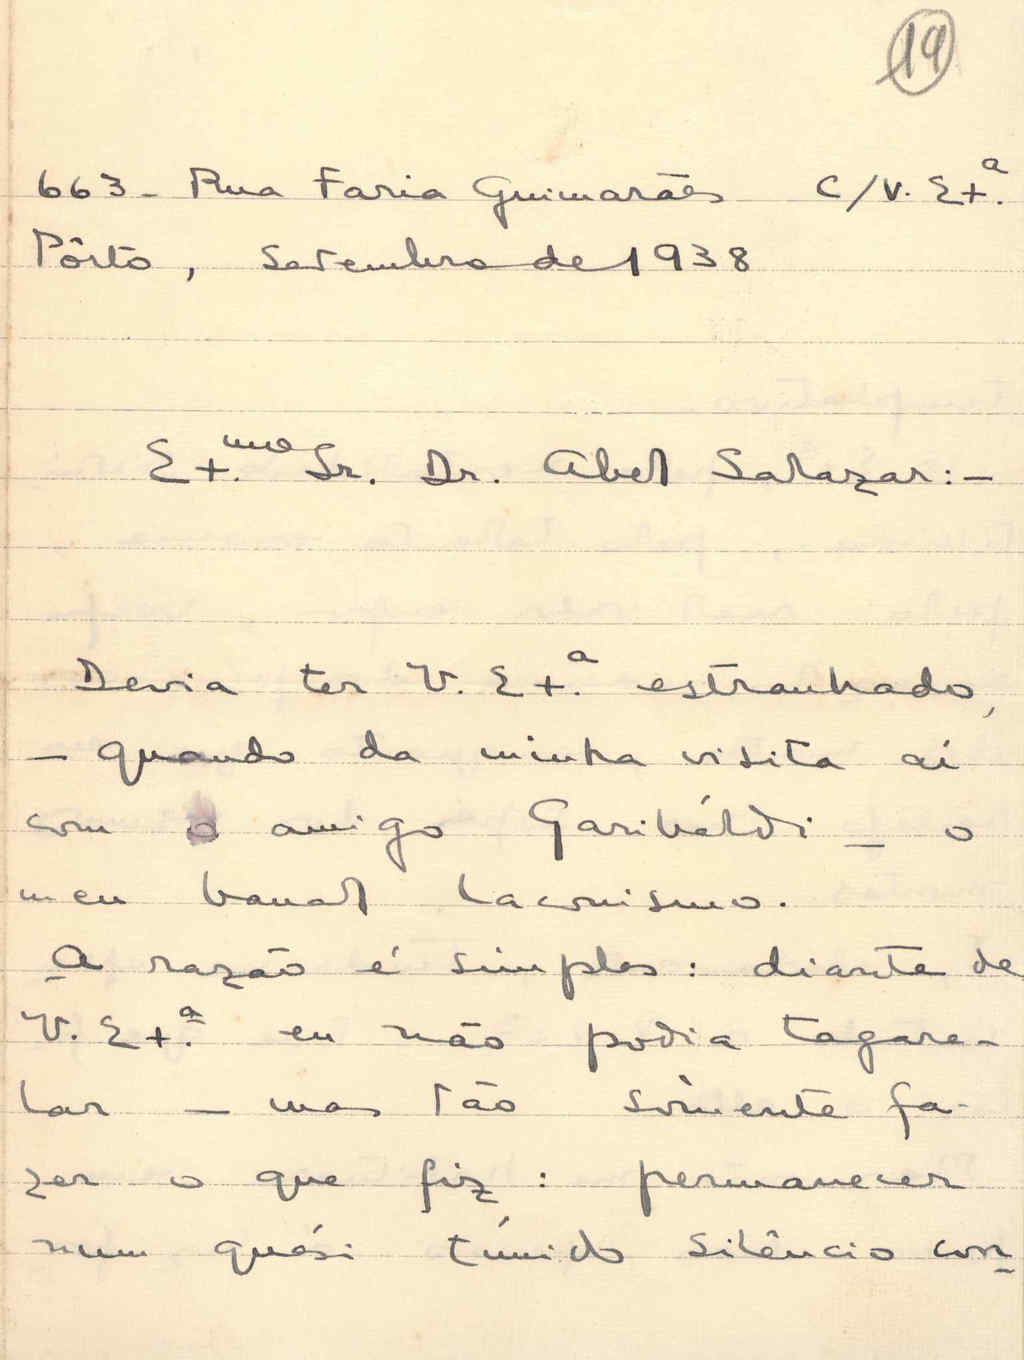 19
663- Rua Faria Guimarães C/V. Ex.ª
Pôrto, Setembro de 1938
Ex.mo Sr. Dr. Abel Salazar:-
Devia ter V. Ex.ª estranhado,
- quando da minha visita aí
com o amigo Garibáldi - o
meu banal laconismo.
A razão é simples: diante de
V. Ex.ª eu não podia tagare-
lar - mas tão sòmente fa-
zer o que fiz: permanecer
num quási tímido silêncio con-